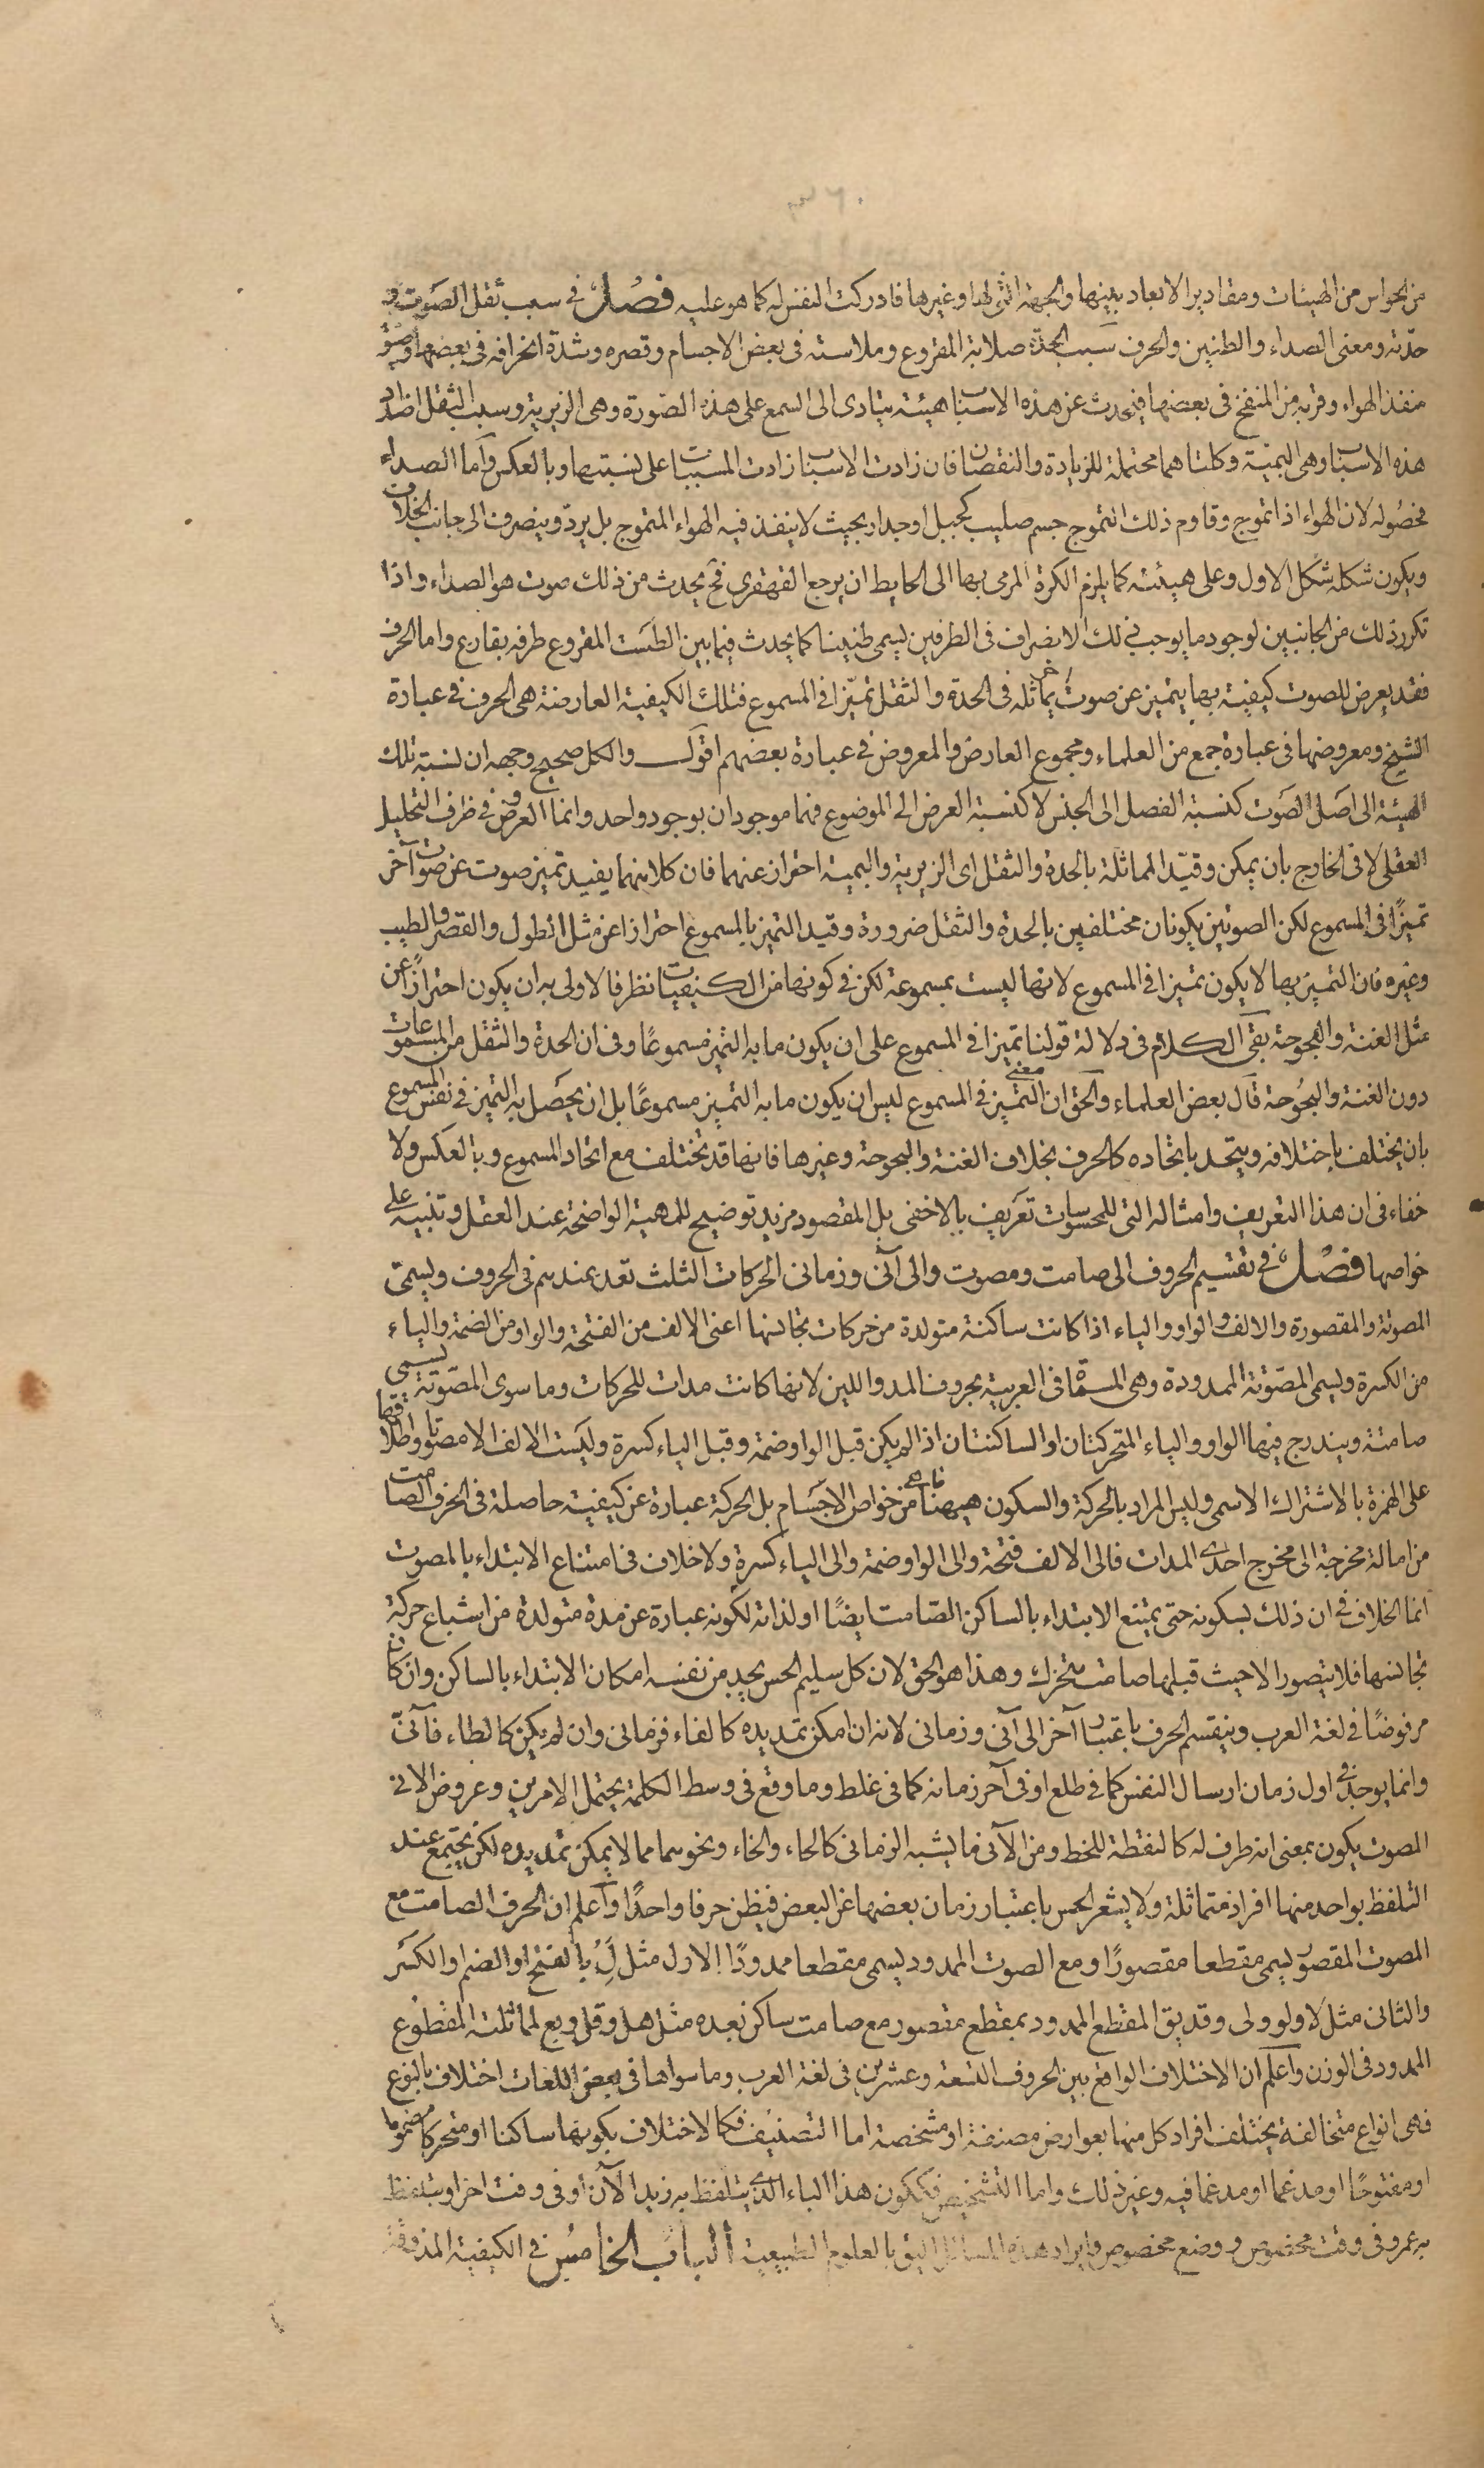 من الحواس من الهيئات ومقادير الابعاد بينها والجهة التى لها وغيرها فادركت النفس له كما هو عليه فصل فى سبب ثقل الصوت و
حدّته ومعنى الصداء والطنين والحرف سبب الحدة صلابة المقروع وملاسته فى بعض الاجسام وقصره وشدة انحرافه فى بعضها وضيق
منفذ الهواء وقربه من المنفخ فى بعضها فيحدث عن هذه الاسباب هيئة يتادى الى السمع على هذه الصّورة وهى الزيرية وسبب الثقل اضداد
هذه الاسباب وهى البمّية وكلتاهما محتملة للزيادة والنقصان فان زادت الاسباب زادت المسببات على نسبتها وبالعكس وأما الصداء
فحصُوله لان الهواء اذا تموج وقاوم ذلك التموج جسم صليب كجبل اوجدار بحيث لا ينفذ فيه الهواء المتموج بل يردّ وينصرف الى جانب الخلاف
ويكون شكله شكل الاول وعلى هيئته كما يلزم الكرة المرمى بها الى الحايط ان يرجع القهقرى فح يحدث من ذلك صوت هو الصداء واذا
تكرر ذلك من الجانبين لوجود ما يوجب ذلك الانصراف فى الطرفين يسمى طنينا كما يحدث فيما بين الطست المقروع طرفه بقارع واما الحرف
فقد يعرض للصوت كيفية بها يتميز عن صوت آخر يماثله فى الحدة والثقل تميّزا فى المسموع فتلك الكيفية العارضة هى الحرف فى عبارة
الشيخ ومعروضها فى عبارة جمع من العلماء ومجموع العارض والمعروض فى عبارة بعضهم اقول والكل صحيح وجهه ان نسبة تلك
الهيئة الى اصل الصّوت كنسبة الفصل الى الجنس لا كنسبة العرض الى الموضوع فهما موجودان بوجود واحد وانما العروض فى ظرف التحليل
العقلى لا فى الخارج بان يمكن وقيّد المماثلة بالحدة والثقل اى الزيرية والبمية احتراز عنهما فان كلا منهما يفيد تميز صوت عن صوت آخر
تميزًا فى المسموع لكن الصوتين يكونان مختلفين بالحدة والثقل ضرورة وقيد التميز بالمسموع احترازا عن مثل الطول والقصر والطيب
وغيره فان التميز بها لا يكون تميزا فى المسموع لانها ليست بمسموعة لكن فى كونها من الكيفيات نظر فالاولى به ان يكون احترازًا عن
مثل الغنة والبحوحة بقى الكلام فى دلالة قولنا تميزا فى المسموع على ان يكون ما به التميز مسموعًا وفى ان الحدة والثقل من المسموعات
دون الغنة والبحُوحة قال بعض العلماء والحق ان معنى التميز فى المسموع ليس ان يكون ما به التميز مسموعًا بل ان يحصَل به التميز فى نفس المسموع
بان يختلف باختلافه ويتحد باتحاده كالحرف بخلاف الغنة والبحوحة وغيرها فانها قد تختلف مع اتحاد المسموع وبالعكس ولا
خفاء فى ان هذا التعريف وامثاله التى للمحسوسات تعريف بالاخفى بل المقصود مزيد توضيح للمهية الواضحة عند العقل وتنبيه على
خواصها فصل فى تقسيم الحروف الى صامت ومصوت والى آنى وزمانى الحركات الثلث تعد عندهم فى الحروف ويسمّى
المصوتة والمقصورة والالف والواو والياء اذا كانت ساكنة متولدة من حركات تجانسها اعنى الالف من الفتحة والواو من الضمة والياء
من الكسرة ويسمى المصّوتة الممدودة وهى المسمّاة فى العربية بحروف المد واللين لانها كانت مدات للحركات وما سوى المصوّتة يسمى
صامتة ويندرج فيها الواو والياء المتحركتان او الساكنتان اذا لم يكن قبل الواو ضمة وقبل الياء كسرة وليست الالف الا مصوتا واطلاقها
على الهمزة بالاشتراك الاسمى وليس المراد بالحركة والسكون هيهنا ما هى من خواص الاجسَام بل الحركة عبارة عن كيفية حاصلة فى الحرف الصامت
من امالة مخرجه الى مخرج احدى المدات فالى الالف فتحة والى الواو ضمة والى الياء كسرة ولا خلاف فى امتناع الابتداء بالمصوت
انما الخلاف فى ان ذلك لسكونه حتى يمتنع الابتداء بالساكن الصّامت ايضًا او لذاته لكونه عبارة عن مدة متولدة من اشباع حركة
تجانسها فلا يتصور الا حيث قبلها صامت متحرك وهذا هو الحق لان كل سليم الحس يجد من نفسه امكان الابتداء بالساكن وان كان
مرفوضًا فى لغة العرب وينقسم الحرف باعتبار آخر الى آنى وزمانى لانه ان امكن تمديده كالفاء فزمانى وان لم يكن كالطاء فآنىّ
وانما يوجد فى اول زمان ارسال النفس كما فى طلع او فى آخر زمانه كما فى غلط وما وقع فى وسط الكلمة يحتمل الامرين وعروض الآنى
المصوت يكون بمعنى انه طرف له كالنقطة للخط ومن الآنى ما يشبه الزمانى كالحاء والخاء ونحوهما مما لا يمكن تمديده لكن يجتمع عند
التلفظ بواحد منها افراد متماثلة ولا يشعر الحس باعتبار زمان بعضها عن البعض فيظن حرفا واحدًا واعلم ان الحرف الصامت مع
المصوت المقصور يسمى مقطعا مقصورًا ومع الصوت الممدود يسمى مقطعا ممدودًا الاول مثل لَِ بالفتح او الضم او الكسَر
والثانى مثل لا ولو ولى وقد يق المقطع الممدود بمقطع مقصور مع صامت ساكن بعده مثل هل وقل وبع لمماثلته المقطوع
الممدود فى الوزن واعلم ان الاختلاف الواقع بين الحروف التسعة وعشرين فى لغة العرب وما سواها فى بعض اللغات اختلاف بالنوع
فهى انواع متخالفة يختلف افراد كل منها بعوارض مصنفة او مشخصة اما التصنيف فكالاختلاف بكونها ساكنا او متحركا مضموما
او مفتوحًا او مدغما او مدغما فيه وغير ذلك واما التشخيص فككون هذا الباء الذى يتلفظ به زيد الآن او فى وقت اخر او يتلفظ
به عمرو فى وقت مخصوص ووضع مخصوص وايراد هذه المسائل اليق بالعلوم الطبيعية الباب الخامس فى الكيفية المذوقة